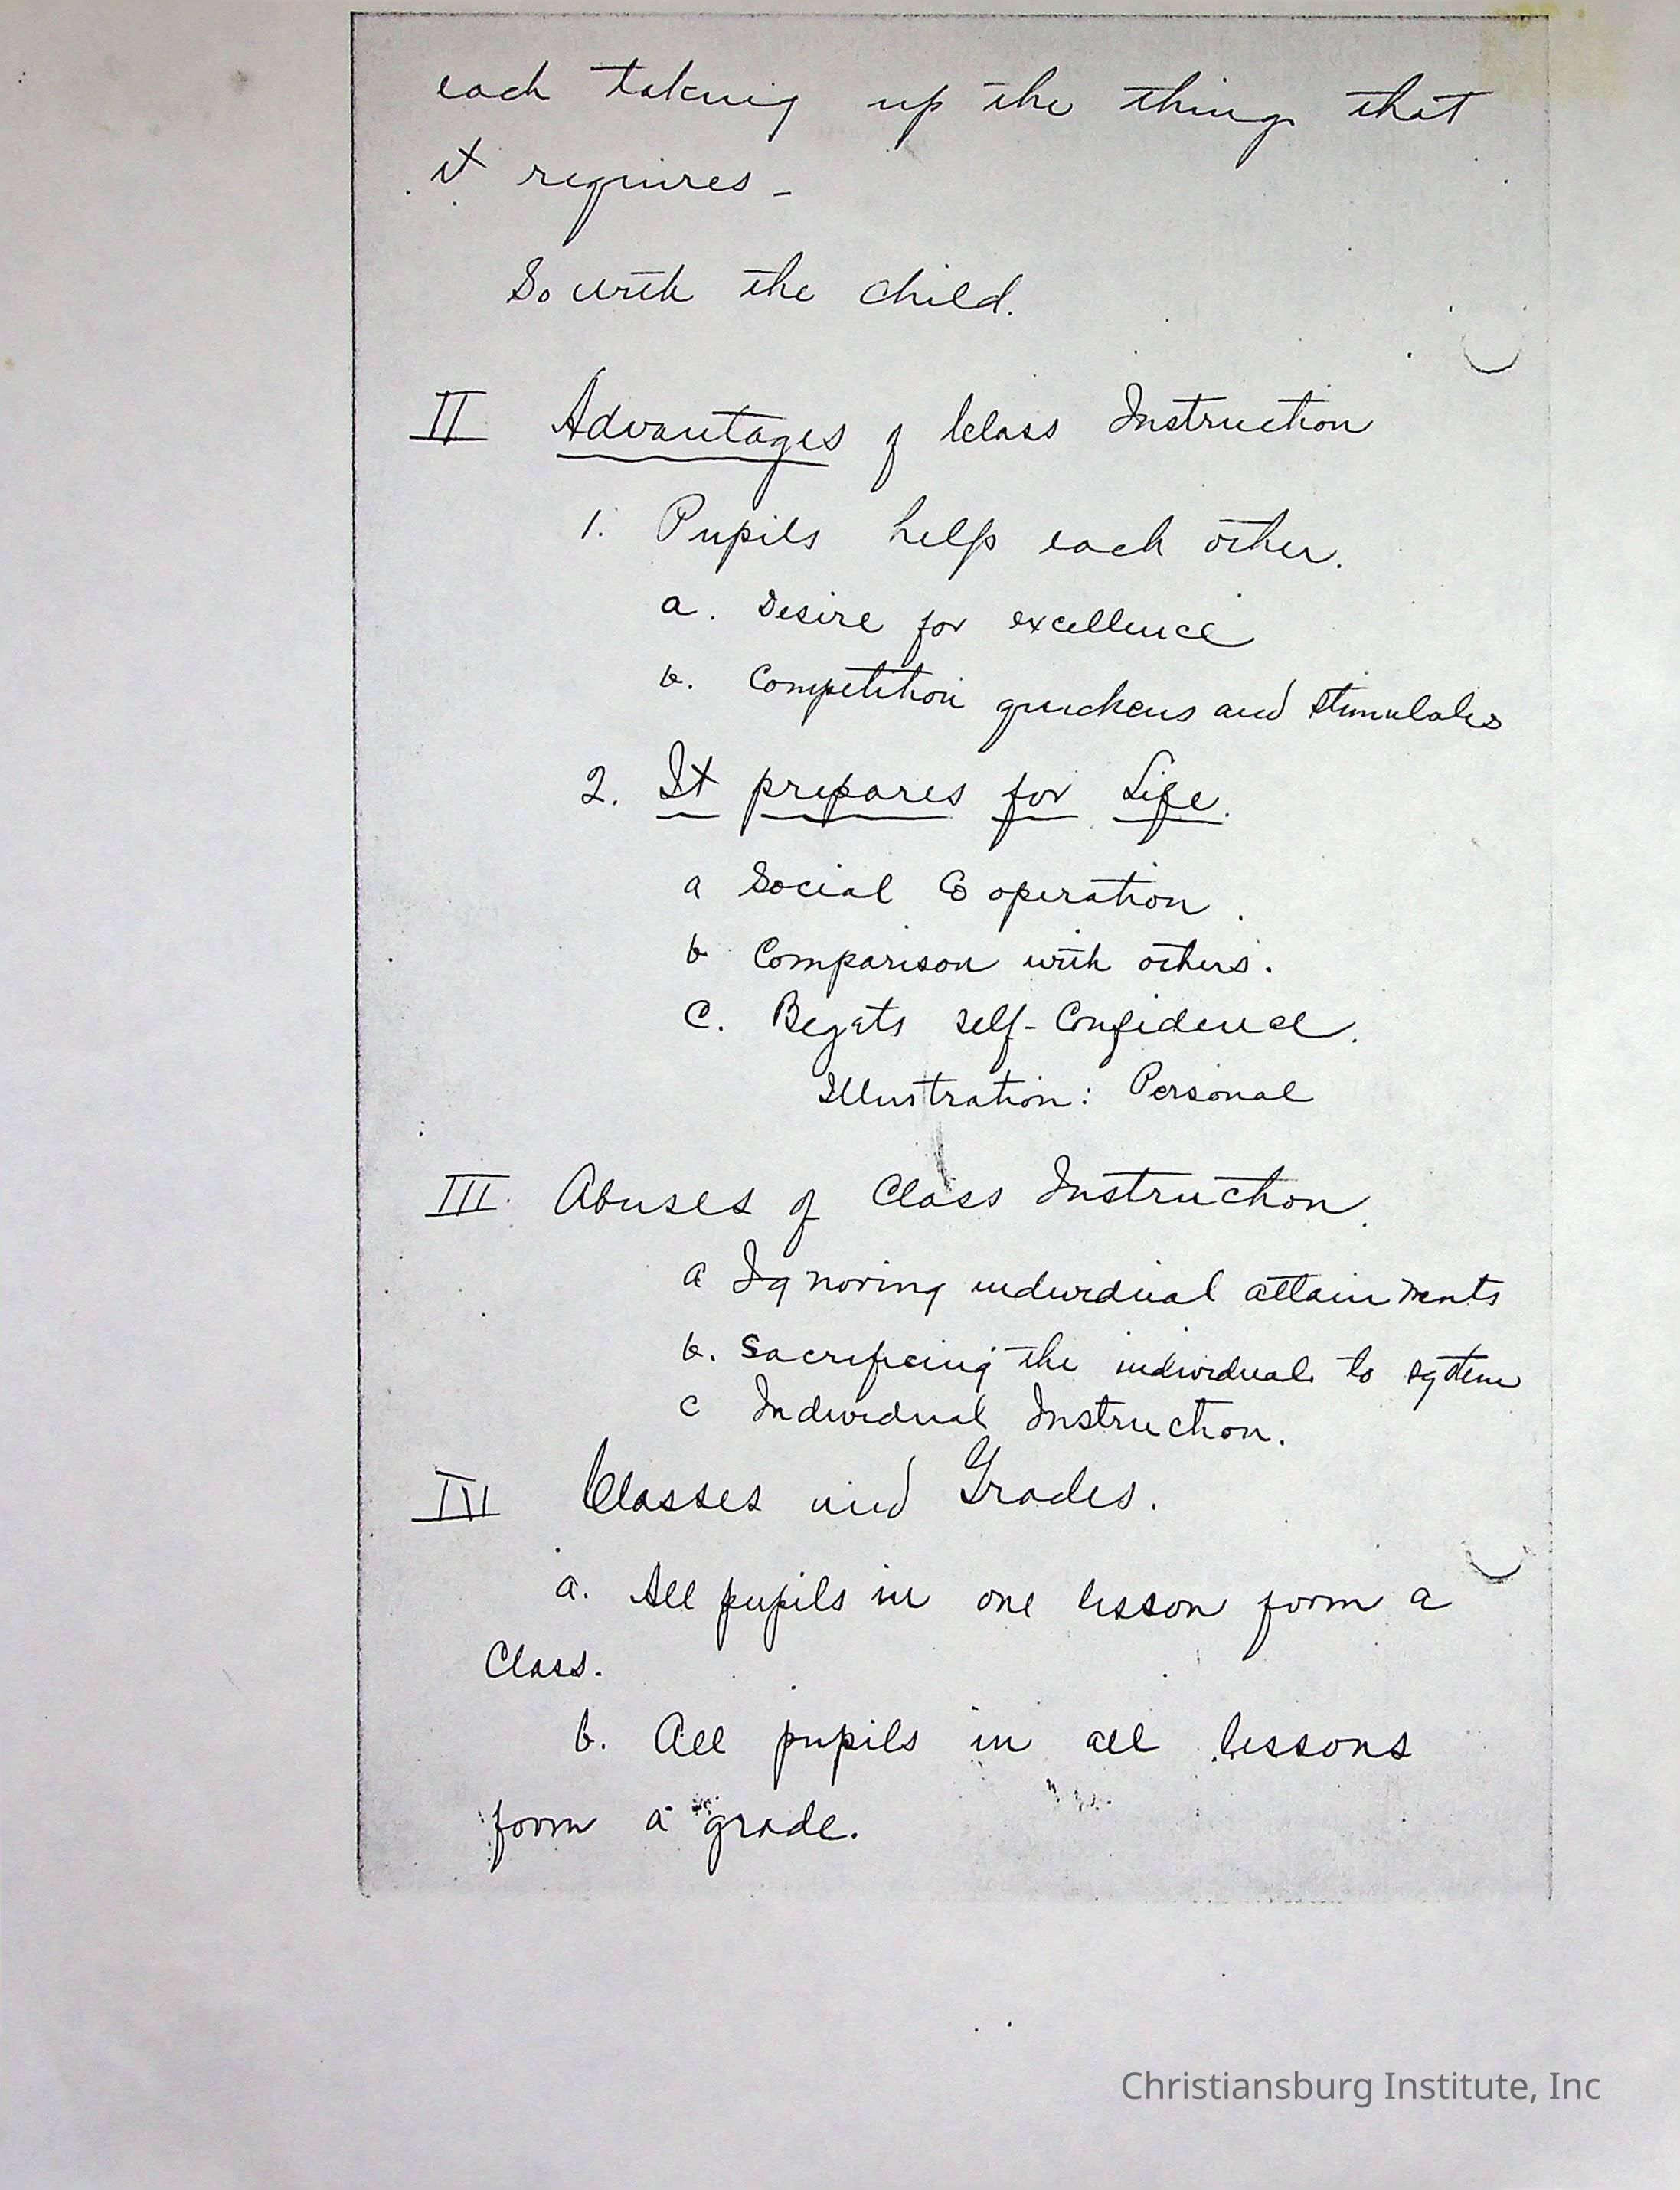 each taking up the thing that
it requires -
So with the child.
II Advantages of Class Instruction
1. Pupils help each other.
a. Desire for excellence
b. Competition quickens and stimulates
2. It prepares for Life.
a Social Co operation.
b Comparison with others.
c. Begets self-Confidence.
Illustration: Personal
III. Abuses of Class Instruction.
a Ignoring individual attainments
b. Sacrificing the individual to system
c Individual Instruction.
IV Classes and Grades.
a. All pupils in one lesson form a
Class.
b. All pupils in all lessons
form a grade.
Christiansburg Institute, Inc